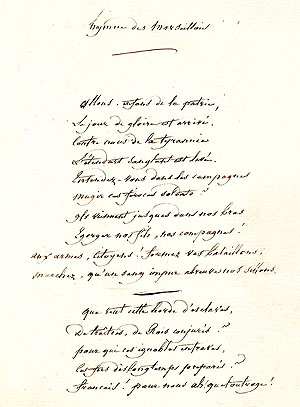 hymne des marseillois
allons enfans de la patrie,
Le jour de gloire est arrivé.
Contre nous de la tyrannie
L'étendart Sanglant est levé.
Entendez-vous dans les campagnes
mugir ces féroces soldats?
ils viennent jusques dans nos bras
Egorger nos fils, nos compagnes!
aux armes, citoyens! formez vos Bataillons,
marchez, qu'un sang impur abreuve nos sillons.
que veut cette horde d'esclaves,
De traitres, de Rois conjurés?
pour qui ces ignobles entraves,
ces fers dès longtemps préparés?
français! pour nous ah! quel outrage!